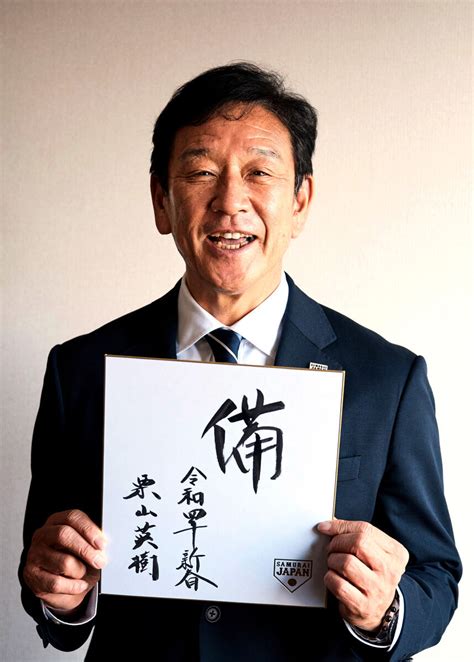 備
令和四年新春
栗山英樹
SAMURAI
JAPAN